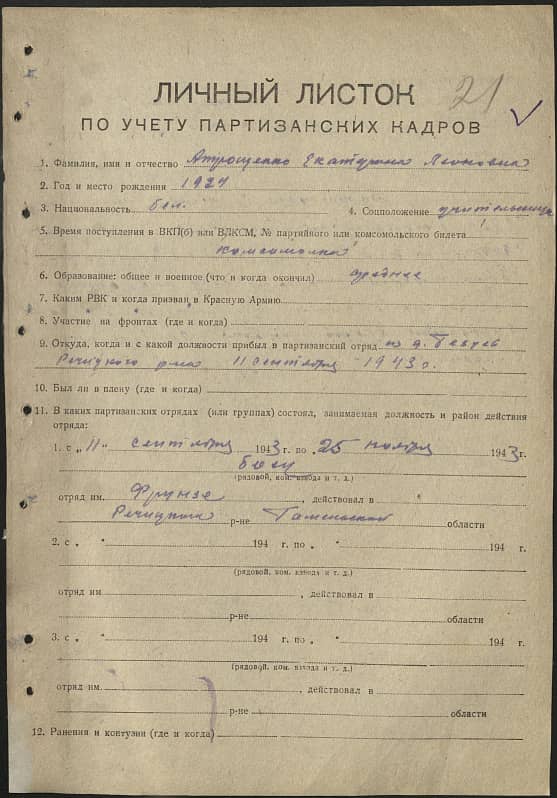 21
ЛИЧНЫЙ ЛИСТОК
ПО УЧЕТУ ПАРТИЗАНСКИХ КАДРОВ
1. Фамилия, имя и отчество Атрощенко Екатерина
2. Год и место рождения 1927
3. Национальность бел. 4. Соцположение учительница
5. Время поступления в ВКП(б) или ВЛКСМ, № партийного или комсомольского билета
комсомолка
6. Образование: общее и военное (что и когда окончил) среднее
7. Каким РВК и когда призван в Красную Армию
8. Участие на фронтах (где и когда)
9. Откуда, когда и с какой должности прибыл в партизанский отряд из д.
Речицкого р-на 11 сентября 1943 г.
10. Был ли в плену (где и когда)
11. В каких партизанских отрядах (или группах) состоял, занимаемая должность и район действия
отряда:
1. с „ 11 “ сентября 1943 г. по „ 25 “ ноября 1943 г.
боец
(рядовой, ком. взвода и т. д.)
отряд им. Фрунзе, действовал в
Речицком р-не Гомельской области
2. с „ “ 194 г. по „ “ 194 г.
(рядовой, ком. взвода и т. д.)
отряд им. , действовал в
р-не области
3. с „ “ 194 г. по „ “ 194 г.
(рядовой, ком. взвода и т. д.)
отряд им. , действовал в
р-не области
12. Ранения и контузии (где и когда)